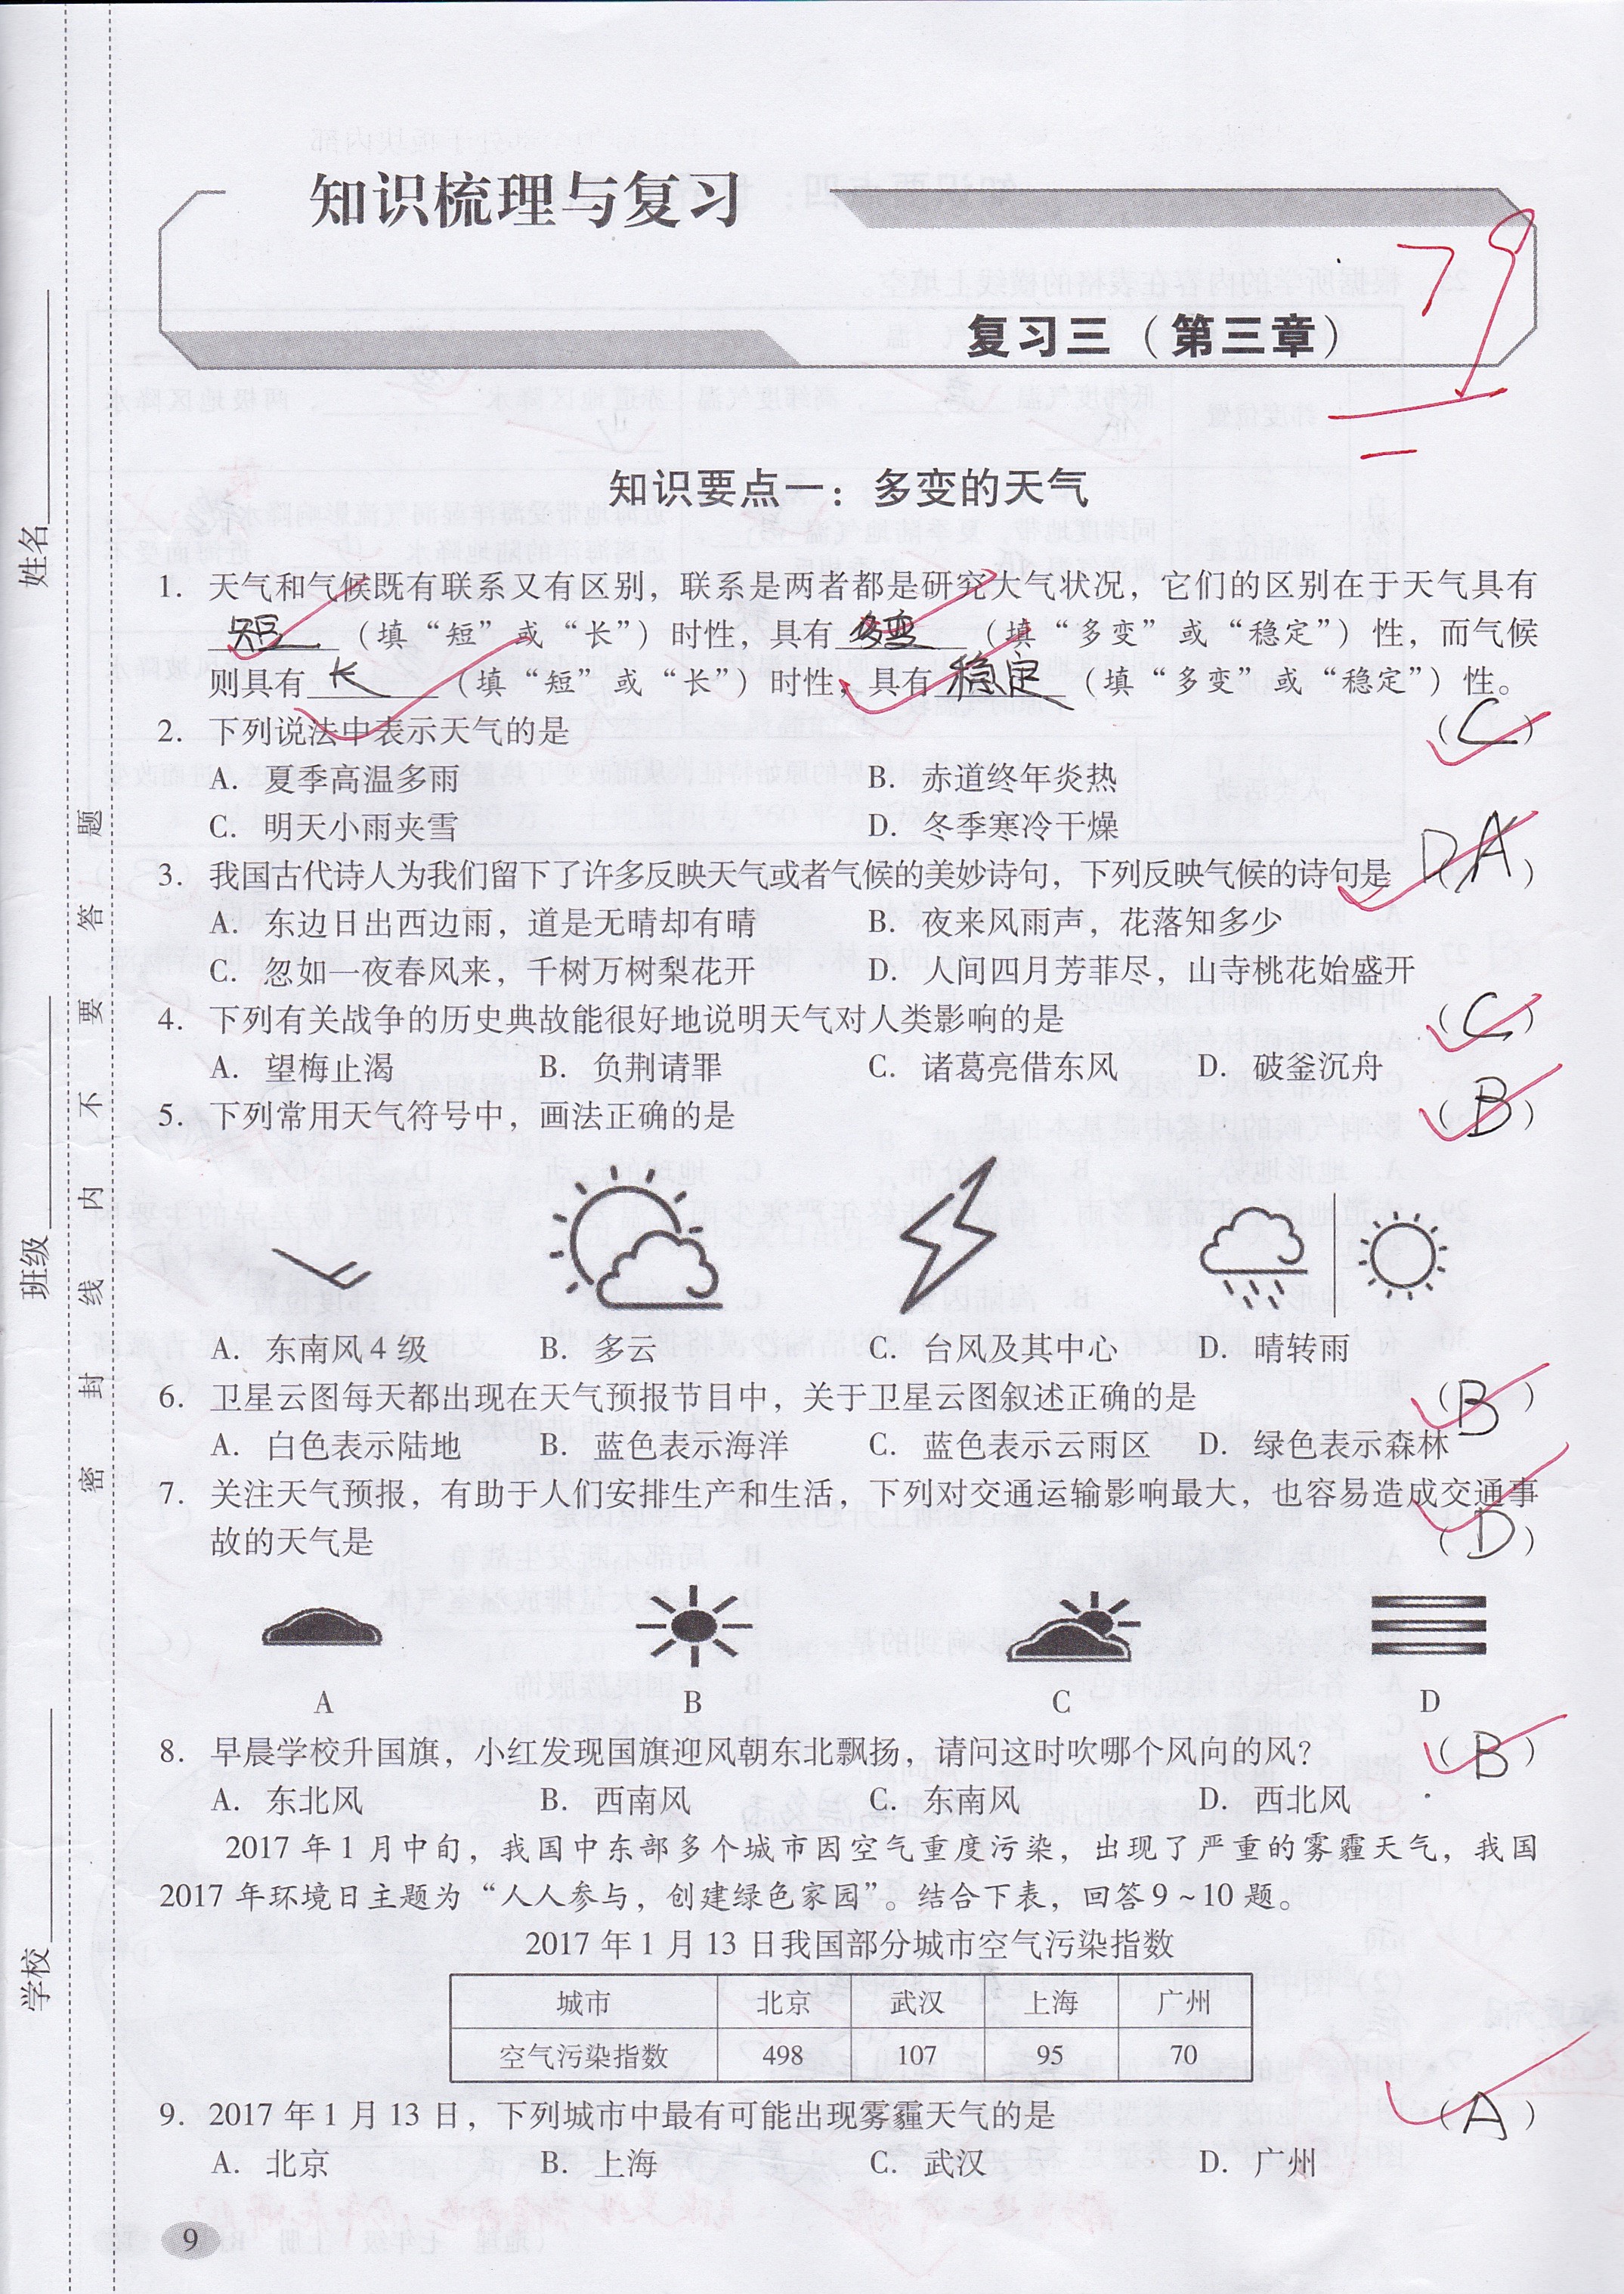 知识梳理与复习
79
复习三（第三章）
知识要点一：多变的天气
1. 天气和气候既有联系又有区别，联系是两者都是研究大气状况，它们的区别在于天气具有
短（填“短”或“长”）时性，具有多变（填“多变”或“稳定”）性，而气候
则具有长（填“短”或“长”）时性，具有稳定（填“多变”或“稳定”）性。
2. 下列说法中表示天气的是（C）
A. 夏季高温多雨 B. 赤道终年炎热
C. 明天小雨夹雪 D. 冬季寒冷干燥
3. 我国古代诗人为我们留下了许多反映天气或者气候的美妙诗句，下列反映气候的诗句是（D A）
A. 东边日出西边雨，道是无晴却有晴 B. 夜来风雨声，花落知多少
C. 忽如一夜春风来，千树万树梨花开 D. 人间四月芳菲尽，山寺桃花始盛开
4. 下列有关战争的历史典故能很好地说明天气对人类影响的是（C）
A. 望梅止渴 B. 负荆请罪 C. 诸葛亮借东风 D. 破釜沉舟
5. 下列常用天气符号中，画法正确的是（B）
A. 东南风4级 B. 多云 C. 台风及其中心 D. 晴转雨
6. 卫星云图每天都出现在天气预报节目中，关于卫星云图叙述正确的是（B）
A. 白色表示陆地 B. 蓝色表示海洋 C. 蓝色表示云雨区 D. 绿色表示森林
7. 关注天气预报，有助于人们安排生产和生活，下列对交通运输影响最大，也容易造成交通事
故的天气是（D）
A B C D
8. 早晨学校升国旗，小红发现国旗迎风朝东北飘扬，请问这时吹哪个风向的风？（B）
A. 东北风 B. 西南风 C. 东南风 D. 西北风
2017年1月中旬，我国中东部多个城市因空气重度污染，出现了严重的雾霾天气，我国
2017年环境日主题为“人人参与，创建绿色家园”。结合下表，回答9~10题。
2017年1月13日我国部分城市空气污染指数
城市 北京 武汉 上海 广州
空气污染指数 498 107 95 70
9. 2017年1月13日，下列城市中最有可能出现雾霾天气的是（A）
A. 北京 B. 上海 C. 武汉 D. 广州
9
姓名
班级
学校
密封线内不要答题